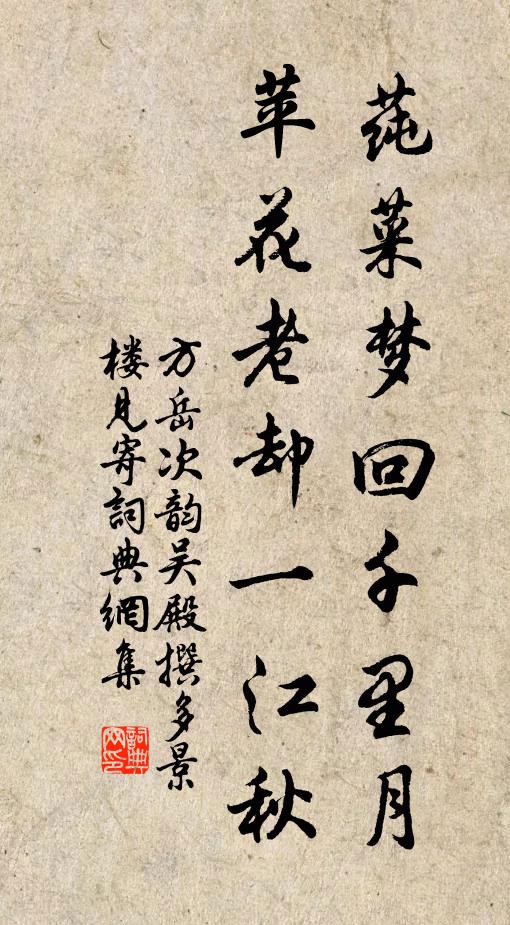 莼菜梦回千里月
苹花老却一江秋
方岳次韵吴殿撰多景
楼见寄詞典網集
詞典网印